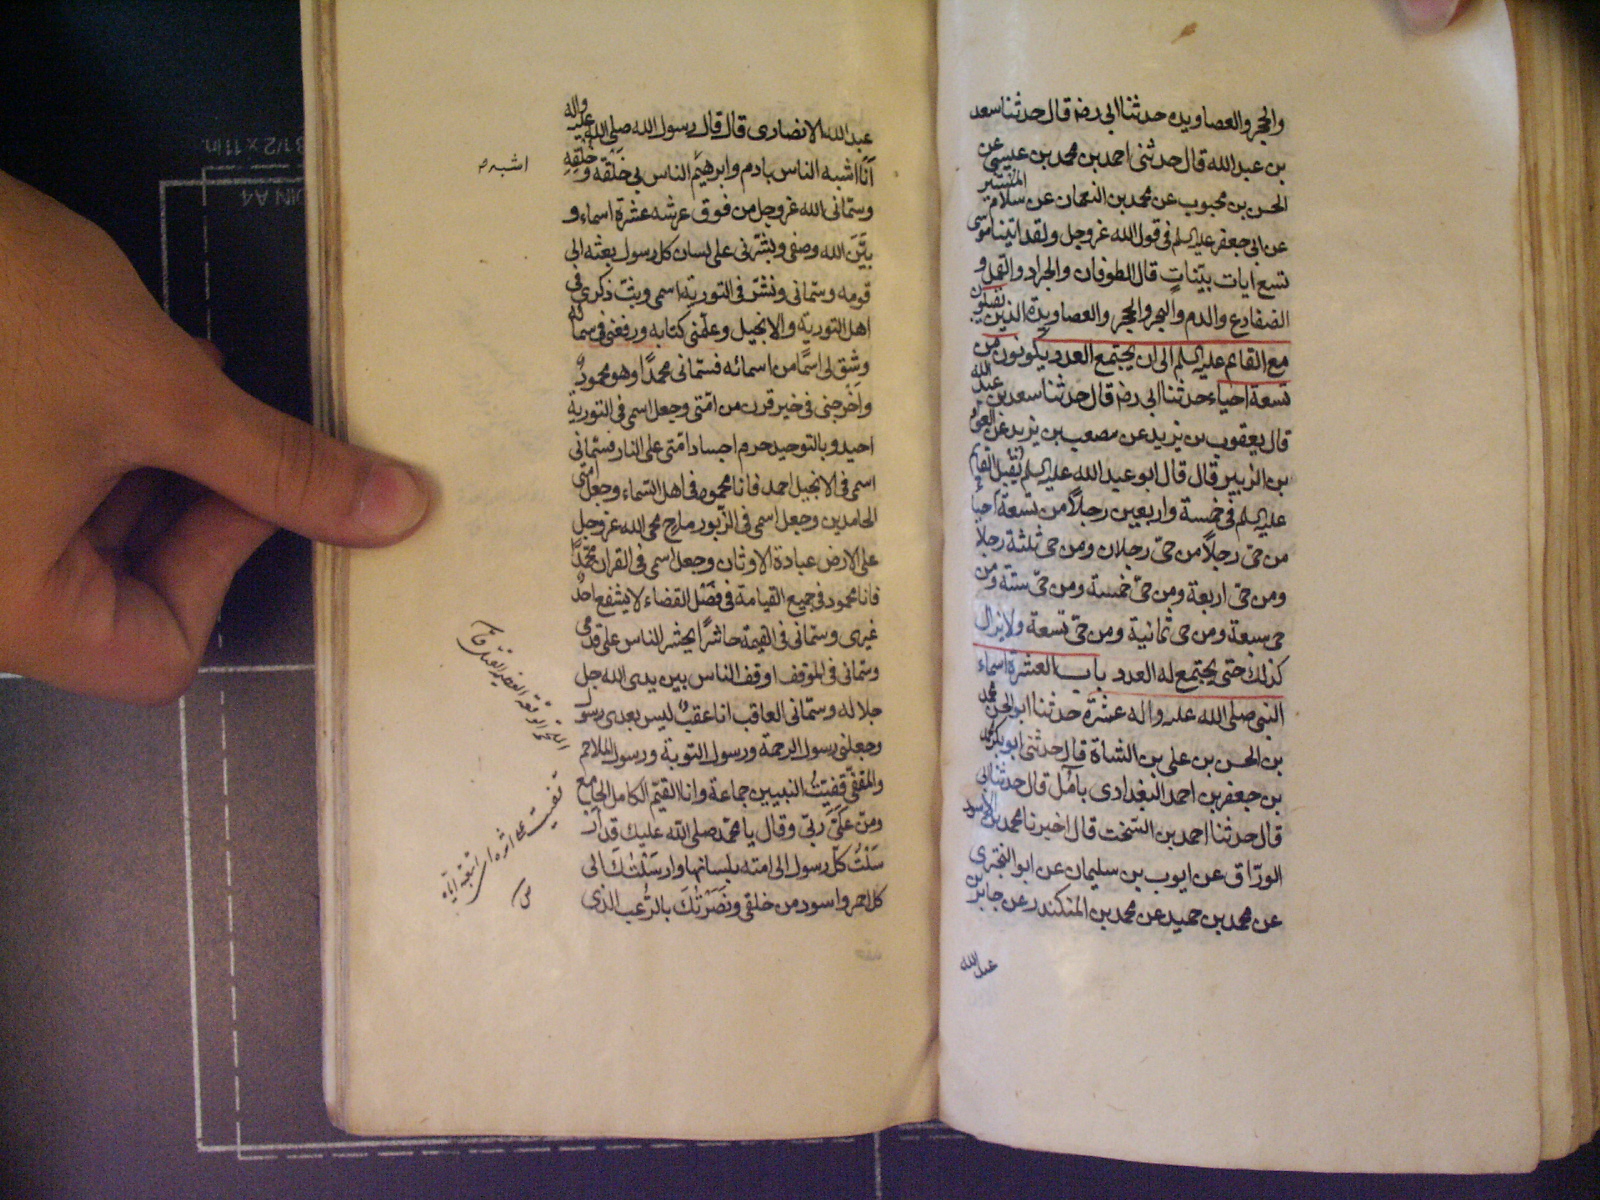 والحجر والعصا ويده حدثنا ابي رضه قال حدثنا سعد
بن عبد الله قال حدثنى احمد بن محمد بن عيسى عن
الحسن بن محبوب عن محمد بن النعمان عن سلام المستنير
عن ابى جعفر عليه السلم فى قول الله عز وجل ولقد اتينا موسى
تسع ايات بينات قال الطوفان والجراد والقمل و
الضفادع والدم والبحر والحجر والعصا ويده الذين يقبلون
مع القائم عليه السلم الى ان يجتمع العدد يكونون من
تسعة احياء حدثنا ابى رضه قال حدثنا سعد بن عبد الله
قال يعقوب بن يزيد عن مصعب بن يزيد عن العوام
بن الزبير قال قال ابو عبد الله عليه السلم يقبل القائم
عليه السلم فى خمسة واربعين رجلاً من تسعة احياء
من حى رجلاً من حىّ رجلان ومن حى ثلثة رجلا
ومن حىّ اربعة ومن حىّ خمسة ومن حىّ ستة ومن
حى سبعة ومن حى ثمانية ومن حىّ تسعة ولا يزال
كذلك حتى يجتمع له العدد باب العشرة اسماء
النبى صلى الله عليه واله عشرة حدثنا ابو الحسن محمد
بن الحسن بن على بن الشاة قال حدثنى ابو بكر محمد
بن جعفر بن احمد البغدادى بامل قال حدثنا ابى
قال حدثنا احمد بن السخت قال اخبرنا محمد بن الاسود
الورّاق عن ايوب بن سليمان عن ابو البخترى
عن محمد بن حميد عن محمد بن المنكدر عن جابر بن
عبد الله
عبد الله الانصارى قال قال رسول الله صلى الله عليه واله
اَنَا اشبه الناس بادم وابرهيم الناس بى خَلْقه وخُلقِه
اشبه
وسمانى الله عز وجل من فوق عرشه عشرة اسماء و
بيّن الله وصفى وبشّرنى على لسان كل رسول بعثه الى
قومه وسمانى ونشر فى التورية اسمى وبث ذكرى فى
اهل التورية والانجيل وعلّمنى كتابه ورفعنى فى سمائه
وشق لى اسمًا من اسمائه فسمانى محمدًا وهو محمودٌ
واخرجنى فى خير قرن من امّتى وجعل اسمى فى التورية
احيد وبالتوحيد حرم اجساد امّتى على النار فسمّانى
اسمى فى الانجيل احمد فانا محمود فى اهل السّماء وجعل امتى
الحامدين وجعل اسمى فى الزّبور ماح محى الله عز وجل
على الارض عبادة الاوثان وجعل اسمى فى القران محمّدًا
فانا محمود فى جميع القيامة فى فصْل القضاء لا يشفع احدٌ
غيرى وسمانى فى القيمة حاشرًا يحشر الناس على قدمى
وسمانى فى الموقف اوقف الناس بين يدى الله جل
جلاله وسمانى العاقب انا عقبٌ ليس بعدى رسول
وجعلنى رسول الرحمة ورسول التوبة ورسول الملاحم
والمقفّى قفيتُ النبيين جماعة وانا القيّم الكامل الجامع
ومَنّ علىَّ ربّى وقال يا محمّد صلى الله عليك قد ار
سَلْتُ كلّ رسول الى امته بلسانها وارسَلْتُكَ الى
كل احمر واسود من خلقى ونَصَرْتُكَ بالرُّعب الذى
قفيت على اثره